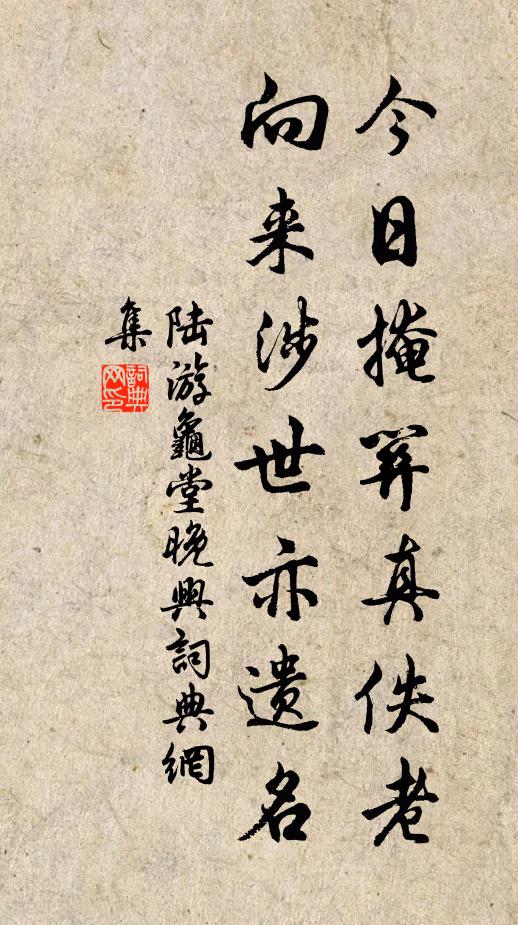 今日掩關真佚老
向来涉世亦遺名
陸游龜堂晚興詞典網
集
詞典网印